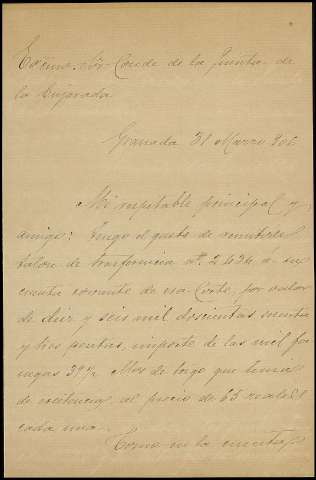 Excmo. Sr. Conde de la Quinta de
la Enjarada
Granada 31 Marzo 906
Mi respetable principal y
amigo: Tengo el gusto de remitirle
talon de trasferencia nº 2626 a su
cuenta corriente de esa Corte, por valor
de diez y seis mil doscientas
y tres pesetas, importe de las mil fa
negas de trigo que tenia
de existencia, al precio de 65 reales
cada una.
Como en la cuenta